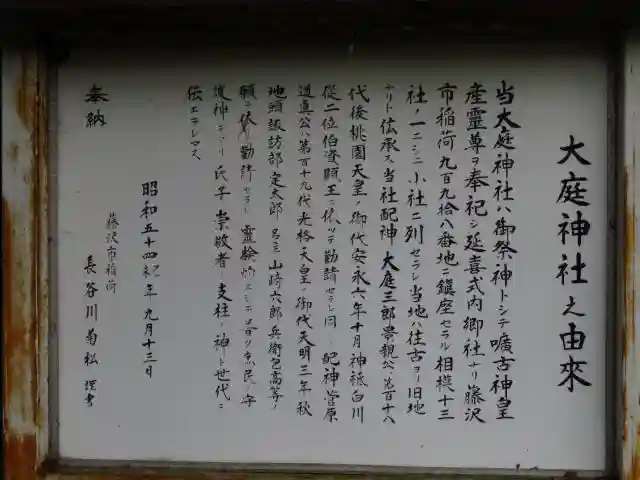 大庭神社之由來
当大庭神社ハ御祭神トシテ曠古神皇
産霊尊ヲ奉祀シ延喜式内郷社ナリ藤沢
市稲荷九百九拾八番地ニ鎮座セラル相模十三
社ノ一ニシテ小社ニ列セラレ当地ハ往古ヨリ旧地
ナリト伝承ス当社配神大庭三郎景親公ハ第百十八
代後桃園天皇ノ御代安永六年十月神祇白川
従二位伯資顕王ニ依ッテ勧請セラレ同 配神菅原
道真公ハ第百十九代光格天皇ノ御代天明三年秋
地頭諏訪部定太郎名主山﨑六郎兵衛包高等ノ
願ニ依リ勧請セラレ霊験
道神ナリ氏子崇敬者ノ支柱ノ神ト世代ニ
伝エラレマス
昭和五十四年九月十三日
藤沢市稲荷
奉納 長谷川菊松